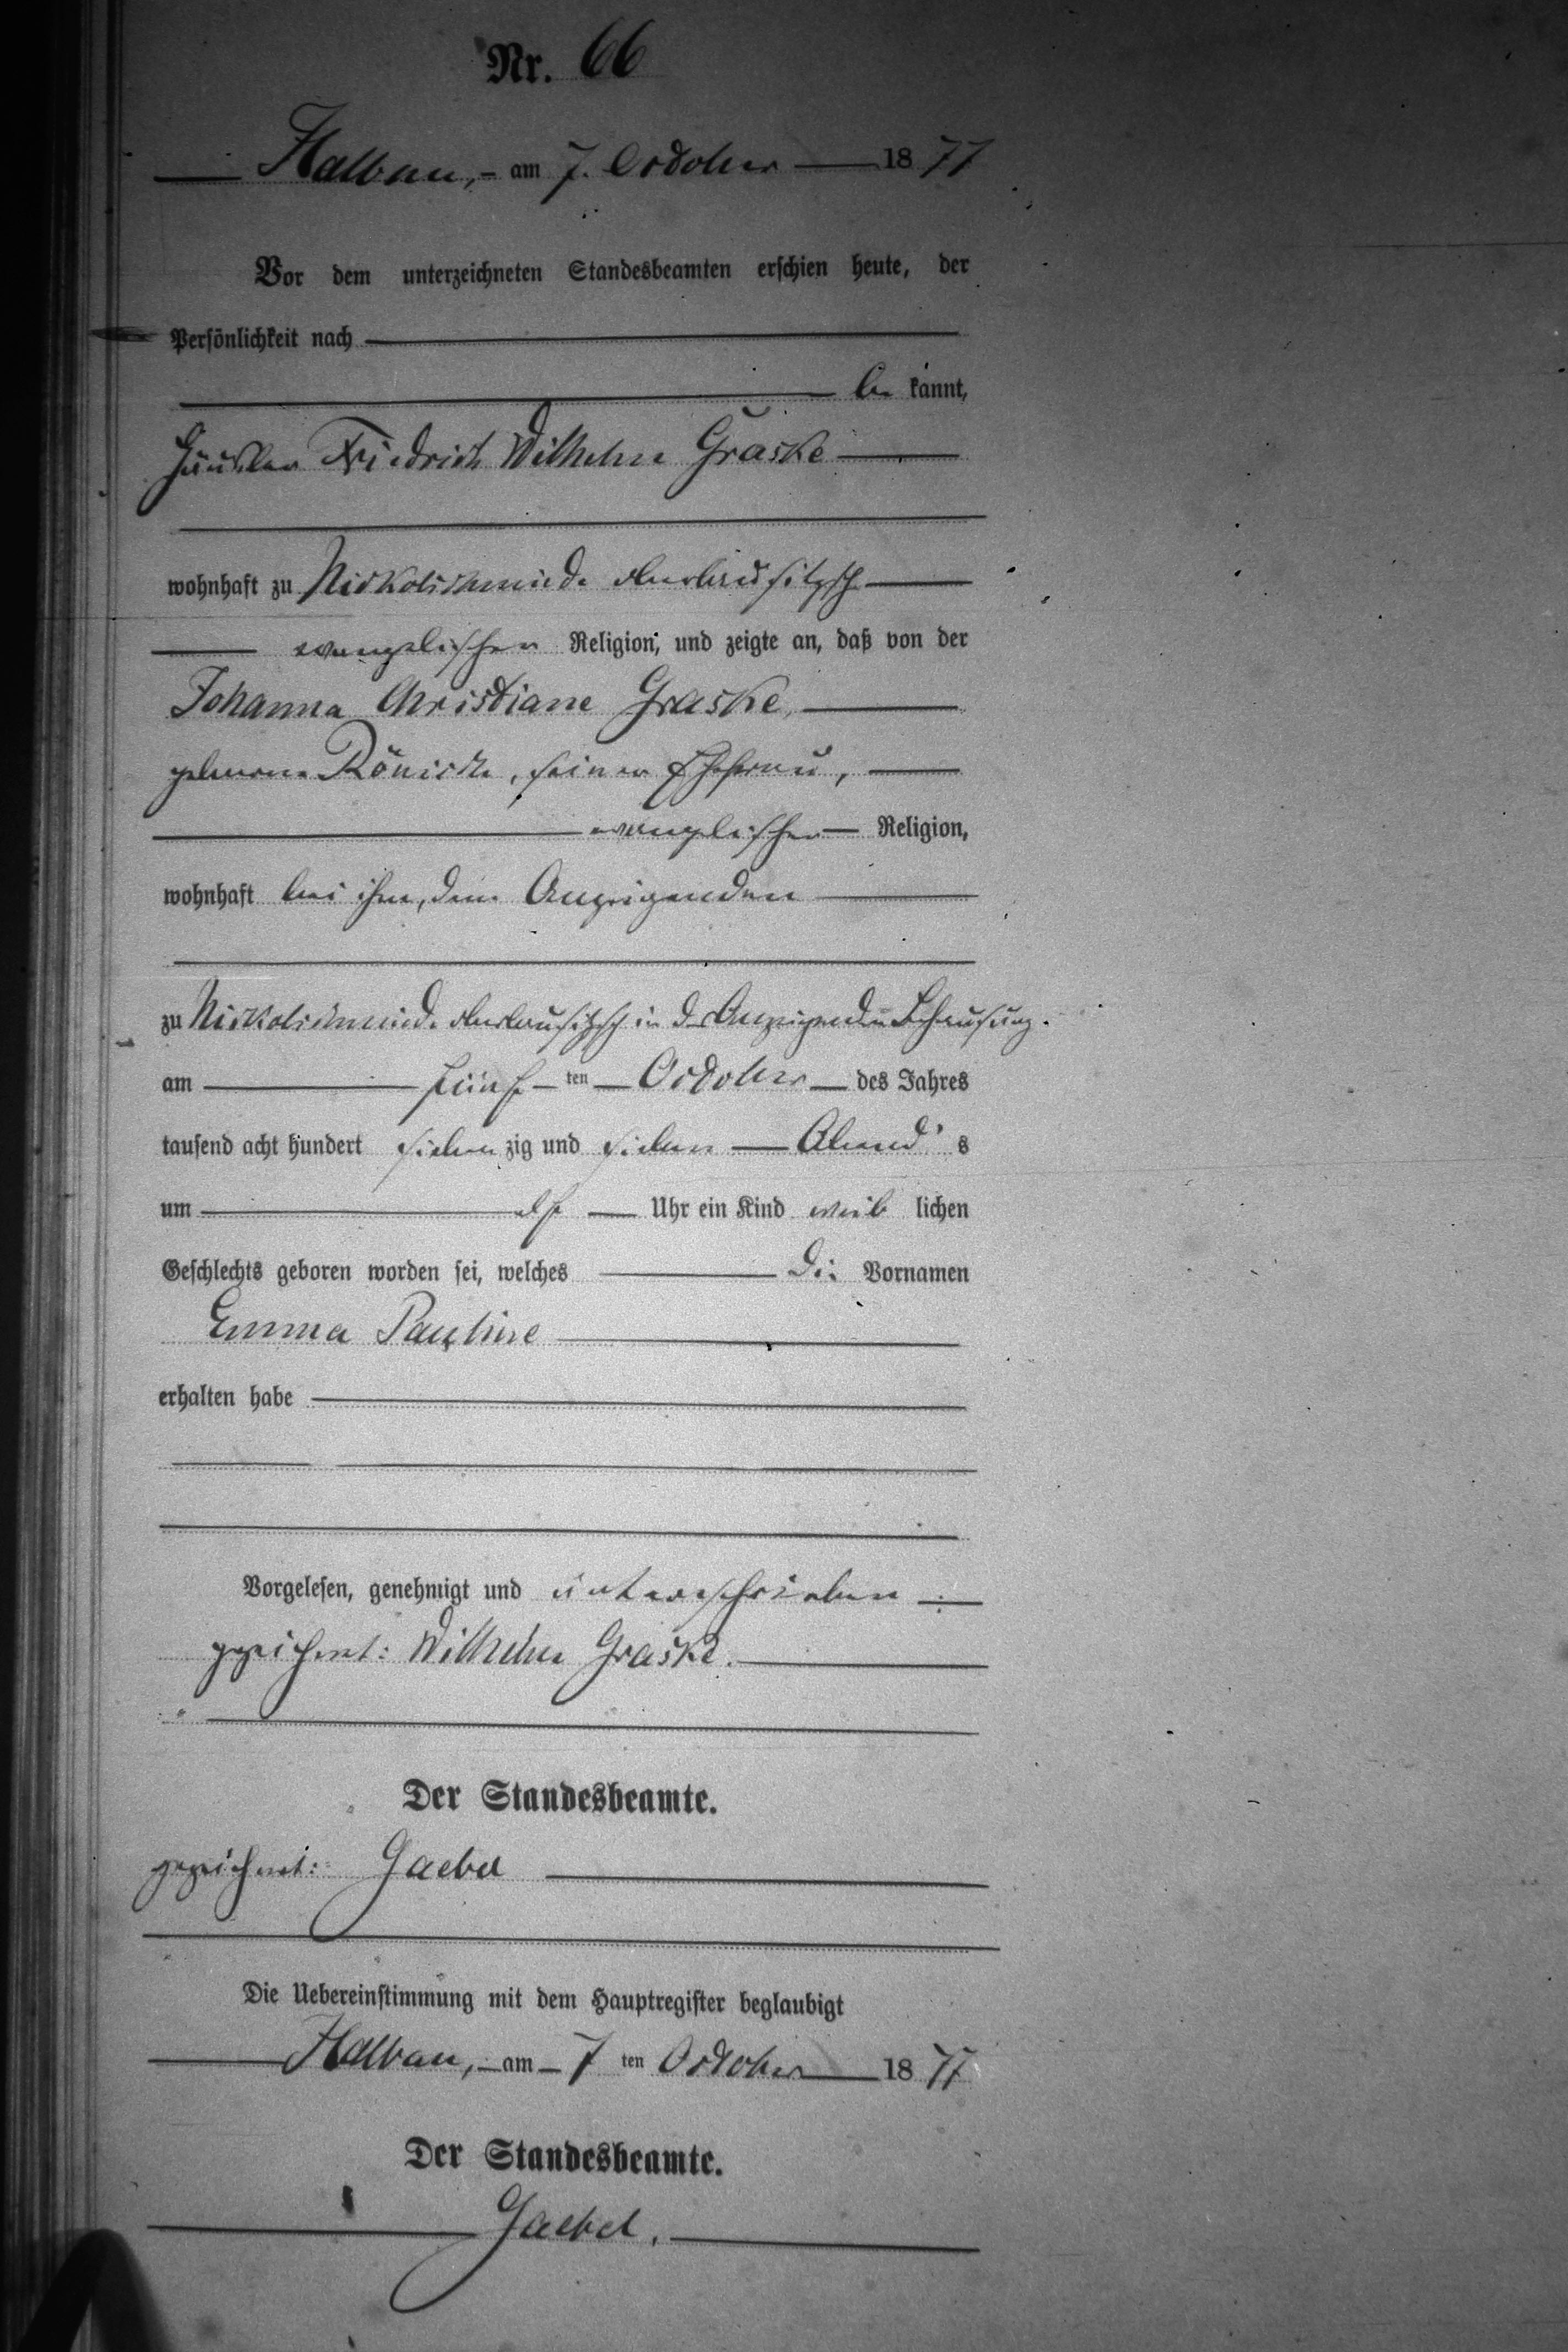 Nr. 66
Halbau, am 7. October 1877
Vor dem unterzeichneten Standesbeamten erschien heute, der
Persönlichkeit nach
be kannt,
Häusler Friedrich Wilhelm Graske
wohnhaft zu Nickolschmiede oberlausitzsch
evangelischer Religion, und zeigte an, daß von der
Johanna Christiane Graske,
geborene Rönisch, seiner Ehefrau,
evangelischer Religion,
wohnhaft bei ihm, dem Anzeigenden
zu Nickolschmiede oberlausitzsch in des Anzeigenden Behausung.
am fünf ten October des Jahres
tausend acht hundert sieben zig und sieben Abend s
um elf Uhr ein Kind weib lichen
Geschlechts geboren worden sei, welches die Vornamen
Emma Pauline
erhalten habe
Vorgelesen, genehmigt und unterschrieben
gezeichnet: Wilhelm Graske.
Der Standesbeamte.
gezeichnet: Gaebel
Die Uebereinstimmung mit dem Hauptregister beglaubigt
Halbau, am 7 ten October 1877
Der Standesbeamte.
Gaebel.